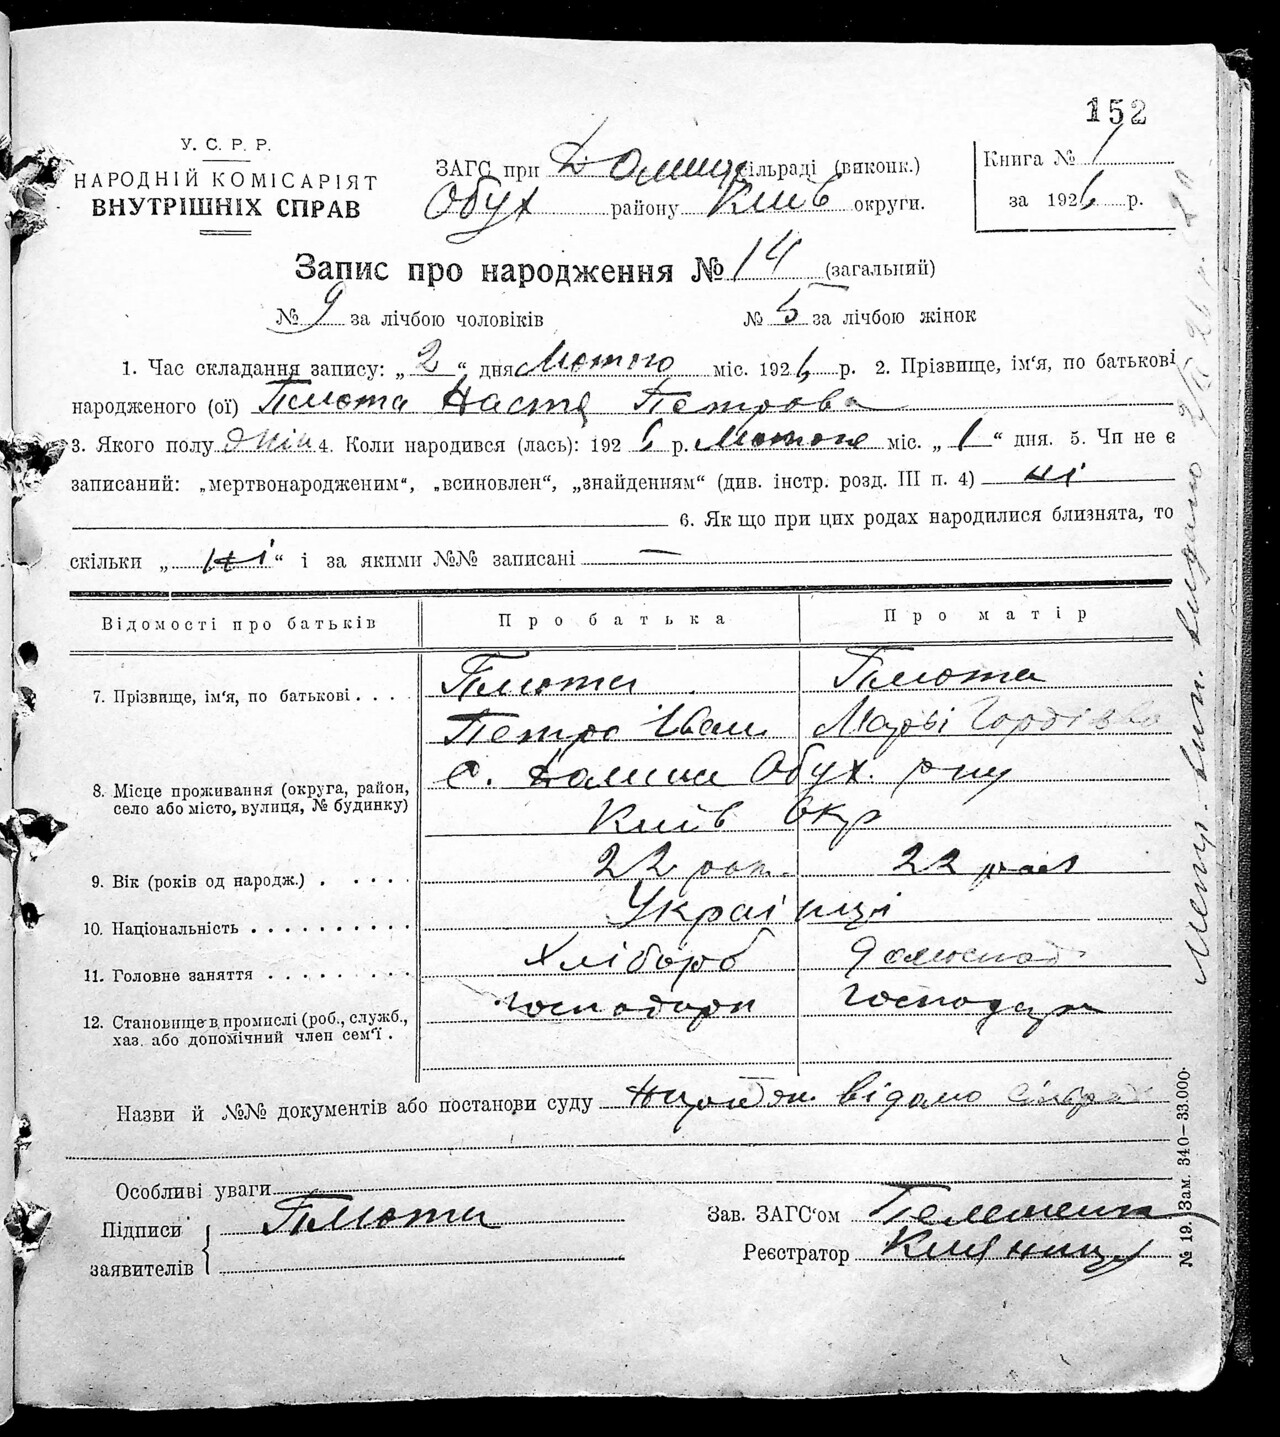 152
У. С. Р. Р.
НАРОДНІЙ КОМІСАРІЯТ
ВНУТРІШНІХ СПРАВ
ЗАГС при Долин сільраді (виконк.)
Обух району Київ округи.
Книга № 1
за 1926 р.
Запис про народження № 14 (загальний)
№ 9 за лічбою чоловіків № 5 за лічбою жінок
1. Час складання запису: „ 2 “ дня Лютого міс. 1926 р. 2. Прізвище, ім'я, по батькові
народженого (ої) Плюта Настя Петрова
3. Якого полу жін 4. Коли народився (лась): 192 6 р. Лютого міс. „ 1 “ дня. 5. Чи не є
записаний: „мертвонародженим“, „всиновлен“, „знайденням“ (див. інстр. розд. III п. 4) ні
6. Як що при цих родах народилися близнята, то
скільки „ ні “ і за якими №№ записані —
Відомості про батьків Про батька Про матір
7. Прізвище, ім'я, по батькові . . . . Плюта Плюта
Петро Іван Марві Гордієва
8. Місце проживання (округа, район, село або місто, вулиця, № будинку) с. Долина Обух. рну
Київ Окр
9. Вік (років од народж.) . . . . . 22 рок. 22 рок
10. Національність . . . . . . . . . . Українці
11. Головне заняття . . . . . . . . Хлібороб Домогоспод
12. Становище в промислі (роб., служб., хаз. або допомічний член сем'ї . господари господар
Назви й №№ документів або постанови суду відомо сільраді
Особливі уваги
Підписи заявителів Плюта
Зав. ЗАГС'ом
Реєстратор Кияниця
№ 19. Зам. 340—33.000.
Метр. вип. видано